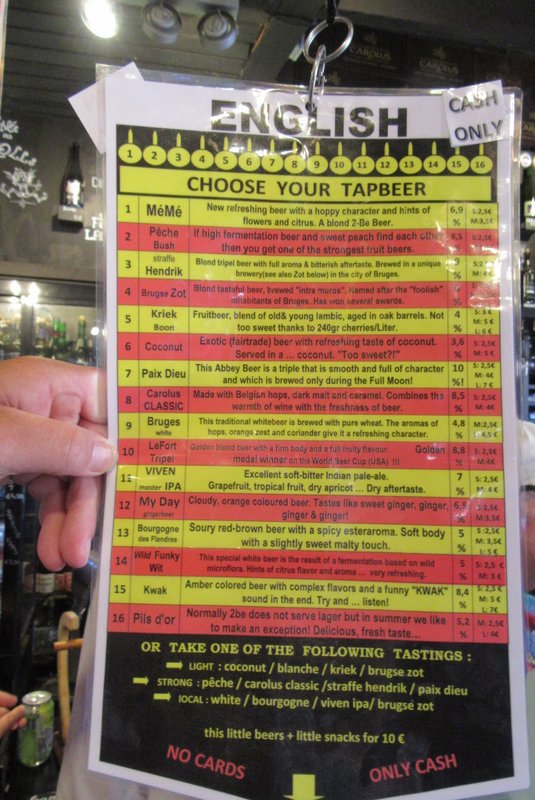 CAROLUS
CAROLUS
ENGLISH
CASH
ONLY
1 2 3 4 5 6 7 8 9 10 11 12 13 14 15 16
CHOOSE YOUR TAPBEER
1 MéMé New refreshing beer with a hoppy character and hints of flowers and citrus. A blond 2-Be Beer. 6,9 % S:2,5€ M:3,5€
2 Pêche Bush If high fermentation beer and sweet peach find each other then you get one of the strongest fruit beers. 8,5 %
3 straffe Hendrik Blond tripel beer with full aroma & bitterish aftertaste. Brewed in a unique brewery(see also Zot below) in the city of Bruges. 9 % S:2,5€ M: 4€
4 Brugse Zot Blond tasteful beer, brewed "intra muros". Named after the "foolish" inhabitants of Bruges. Has won several awards. %
5 Kriek Boon Fruitbeer, blend of old& young lambic, aged in oak barrels. Not too sweet thanks to 240gr cherries/Liter. 4 % S: 3 € M: 5 € L: 6 €
6 Coconut Exotic (fairtrade) beer with refreshing taste of coconut. Served in a ... coconut. "Too sweet?!" 3,6 % S: 2,5€ M: 5 €
7 Paix Dieu This Abbey Beer is a triple that is smooth and full of character and which is brewed only during the Full Moon! 10 %! S: 2,5€ M: 4€ L: 7 €
8 Carolus CLASSIC Made with Belgian hops, dark malt and caramel. Combines the warmth of wine with the freshness of beer. 8,5 % S: 2,5€ M: 4€
9 Bruges white This traditional whitebeer is brewed with pure wheat. The aromas of hops, orange zest and coriander give it a refreshing character. 4,8 % M:2,5€ L:4,5 €
10 LeFort Tripel Golden blond beer with a firm body and a full fruity flavour. Golden medal winner on the World Beer Cup (USA) !!! 8,8 % S:2,5€ M:4€
11 VIVEN master IPA Excellent soft-bitter Indian pale-ale. Grapefruit, tropical fruit, dry apricot ... Dry aftertaste. 7 % S: 2,5€ M: 4 €
12 My Day gingerbeer Cloudy, orange coloured beer. Tastes like sweet ginger, ginger, ginger & ginger! 6,5 % S:2,5€ M:3,5€
13 Bourgogne des Flandres Soury red-brown beer with a spicy esteraroma. Soft body with a slightly sweet malty touch. 5 % S: 2,5€ M: 3,5€ L: 5 €
14 Wild Funky Wit This special white beer is the result of a fermentation based on wild microflora. Hints of citrus flavor and aroma ... very refreshing. 5 % S: 2,5 € M: 3 €
15 Kwak Amber colored beer with complex flavors and a funny "KWAK" sound in the end. Try and ... listen! 8,4 % S: 2,5 € M: 5 € L: 7€
16 Pils d'or Normally 2be does not serve lager but in summer we like to make an exception! Delicious, fresh taste... 5,2 % M: 2,5€ L: 4€
OR TAKE ONE OF THE FOLLOWING TASTINGS :
LIGHT : coconut / blanche / kriek / brugse zot
STRONG : pêche / carolus classic /straffe hendrik / paix dieu
lOCAL : white / bourgogne / viven ipa/ brugse zot
this little beers + little snacks for 10 €
NO CARDS
ONLY CASH